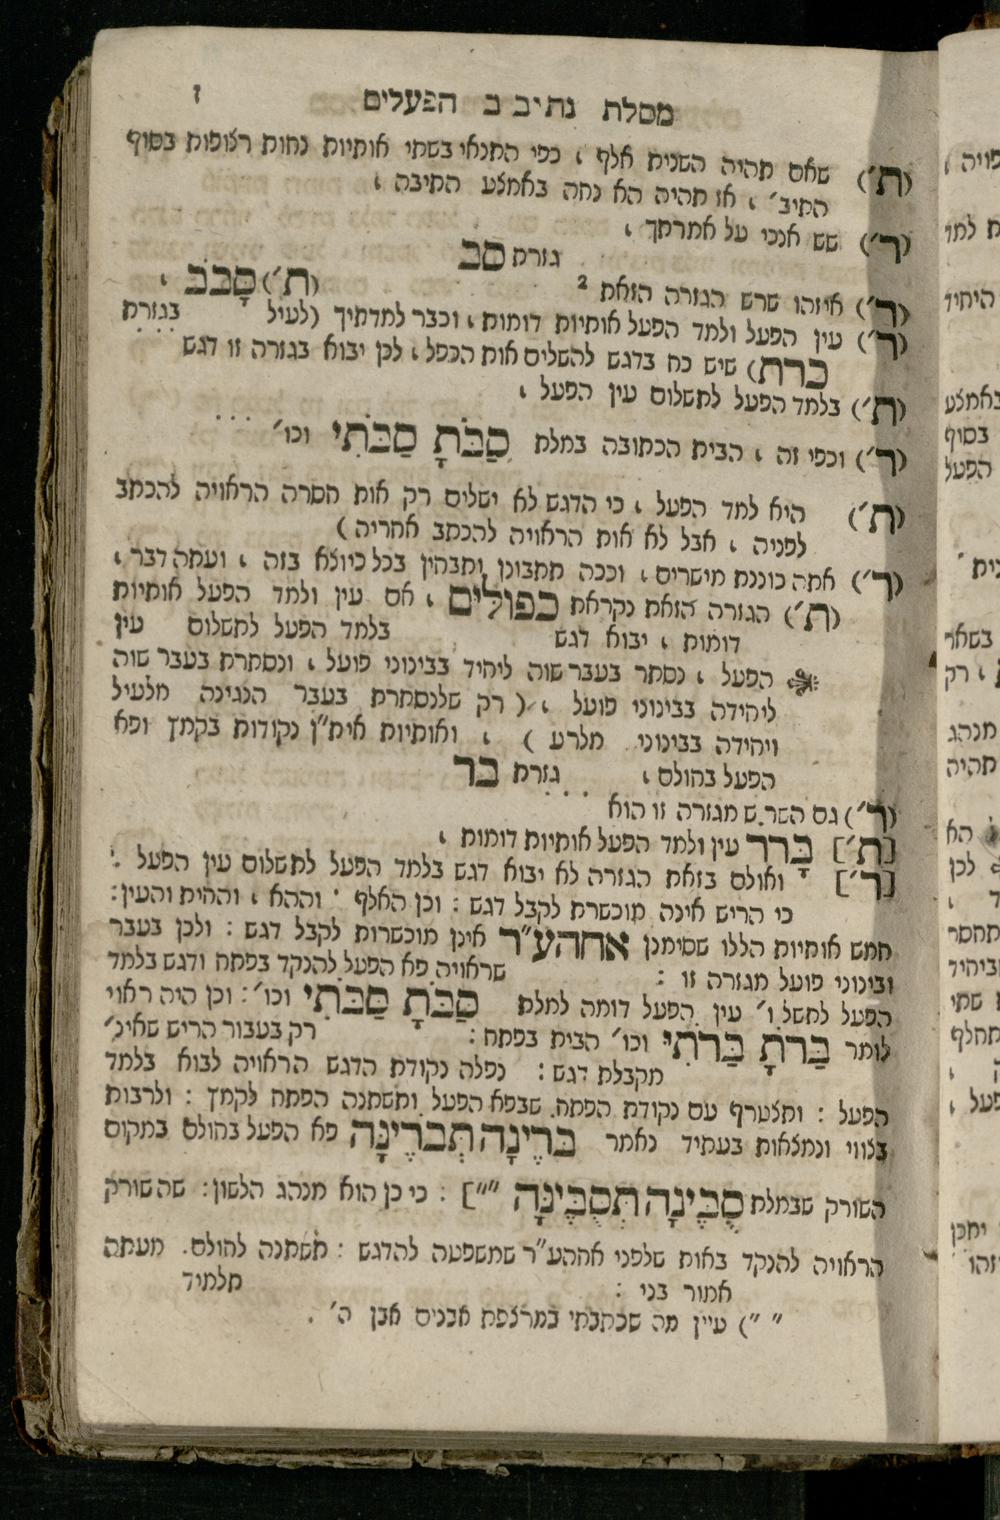 מסלת נתיב ב הפעלים ז
(ת׳) שאם תהיה השנית אלף , כפי התנאי בשתי אותיות נחות רצופות בסוף
התיב׳ , או תהיה הא נחה באמצע התיבה ,
(ר׳) שש אנכי על אמרתך ,
גזרת סב
(ר׳) איזהו שרש הגזרה הזאת 2 (ת׳) סָבַב ,
(ר׳) עין הפעל ולמד הפעל אותיות דומות , וכבר למדתיך (לעיל בגזרת
כרת) שיש כח בדגש להשלים אות הכפל , לכן יבוא בגזרה זו דגש
(ת׳) בלמד הפעל לתשלום עין הפעל ,
(ר׳) וכפי זה , הבית הכתובה במלת סַבֹּתָ סַבֹּתִי וכו׳ ...
(ת׳) היא למד הפעל , כי הדגש לא ישלים רק אות חסרה הראויה להכתב
לפניה , אבל לא אות הראויה להכתב אחריה )
(ר׳) אתה כוננת מישרים , וככה תתבונן ותבחין בכל כיוצא בזה , ועתה דבר ,
(ת׳) הגזרה הזאת נקראת כפולים , אם עין ולמד הפעל אותיות
דומות , יבוא דגש בלמד הפעל לתשלום עין
הפעל , נסתר בעבר שוה ליחיד בבינוני פועל , ונסתרת בעבר שוה
ליחידה בבינוני פועל , ( רק שלנסתרת בעבר הנגינה מלעיל
ויחידה בבינוני מלרע ) , ואותיות אית״ן נקודות בקמץ ופא
הפעל בחולם , גזרת בר
(ר׳) גם השרש מגזרה זו הוא ...
[ת׳] בָּרַר עין ולמד הפעל אותיות דומות ,
[ר׳] ואולם בזאת הגזרה לא יבוא דגש בלמד הפעל לתשלום עין הפעל :
כי הריש אינה מוכשרת לקבל דגש : וכן האלף · וההא , וההית והעין :
חמש אותיות הללו שסימנן אחהע״ר אינן מוכשרות לקבל דגש : ולכן בעבר
ובינוני פועל מגזרה זו : שראויה פא הפעל להנקד בפתח ודגש בלמד
הפעל לתשלו׳ עין הפעל דומה למלת סַבֹּתָ סַבֹּתִי וכו׳ : וכן היה ראוי
לומר בַּרֹתָ בַּרֹתִי וכו׳ הבית בפתח : רק בעבור הריש שאינ׳
מקבלת דגש : נפלה נקודת הדגש הראויה לבוא בלמד
הפעל : ותצטרף עם נקודת הפתח שבפא הפעל ותשתנה הפתח לקמץ : ולרבות
בצווי ונמצאות בעתיד נאמר בֹּרֶינָה תְּבֹרֶינָה פא הפעל בחולם במקום
השורק שבמלת סֻבֶּינָה תְּסֻבֶּינָה ״״] : כי כן הוא מנהג הלשון : שהשורק
הראויה להנקד באות שלפני אחהע״ר שמשפטה להדגש : תשתנה לחולם . מעתה
אמור בני : תלמיד
״ ״) עיין מה שכתבתי במרצפת אבנים אבן ה׳ .